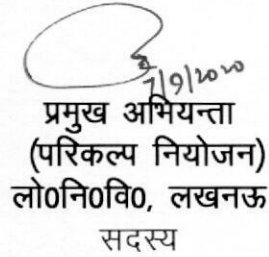 7/9/2020
प्रमुख अभियन्ता
(परिकल्प नियोजन)
लो0नि0वि0, लखनऊ
सदस्य